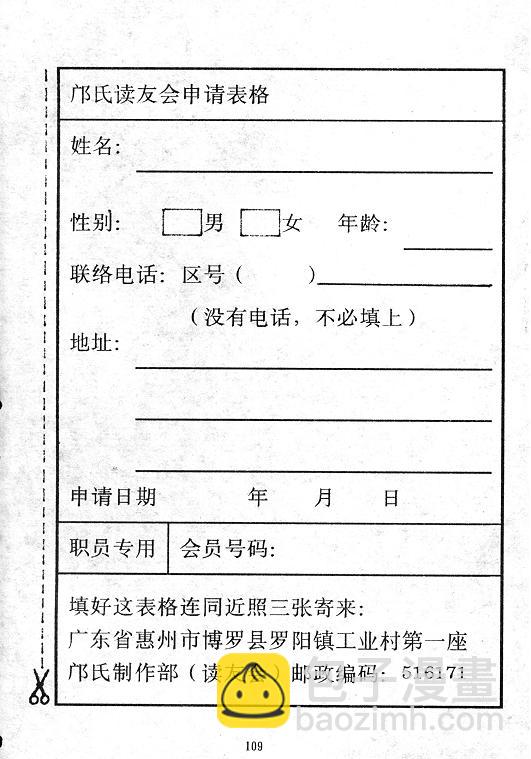 邝氏读友会申请表格
姓名：
性别： 男 女 年龄：
联络电话：区号（ ）
（没有电话，不必填上）
地址：
申请日期 年 月 日
职员专用 会员号码：
填好这表格连同近照三张寄来：
广东省惠州市博罗县罗阳镇工业村第一座
邝氏制作部（读友会）邮政编码：516171
包子漫畫
baozimh.com
109